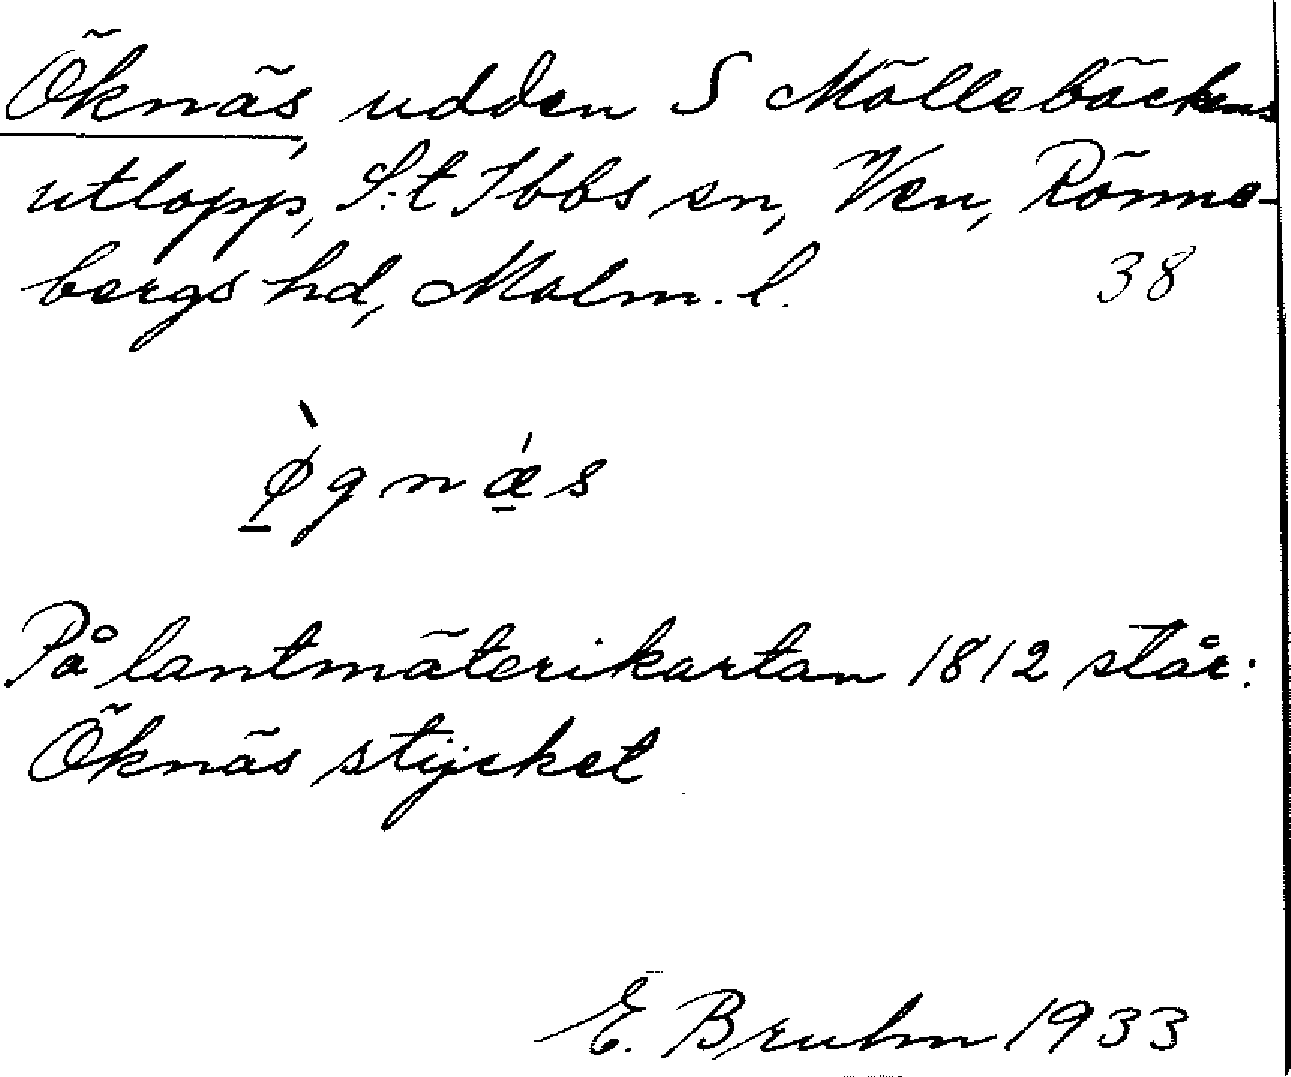 Öknäs, udden S Möllebäckens
utlopp, S:t Ibbs sn, Ven, Rönne-
bergs hd, Malm. l. 38
ø̠̀gnǽ̠s
På lantmäterikartan 1812 står:
Öknäs stycket
E. Bruhn 1933